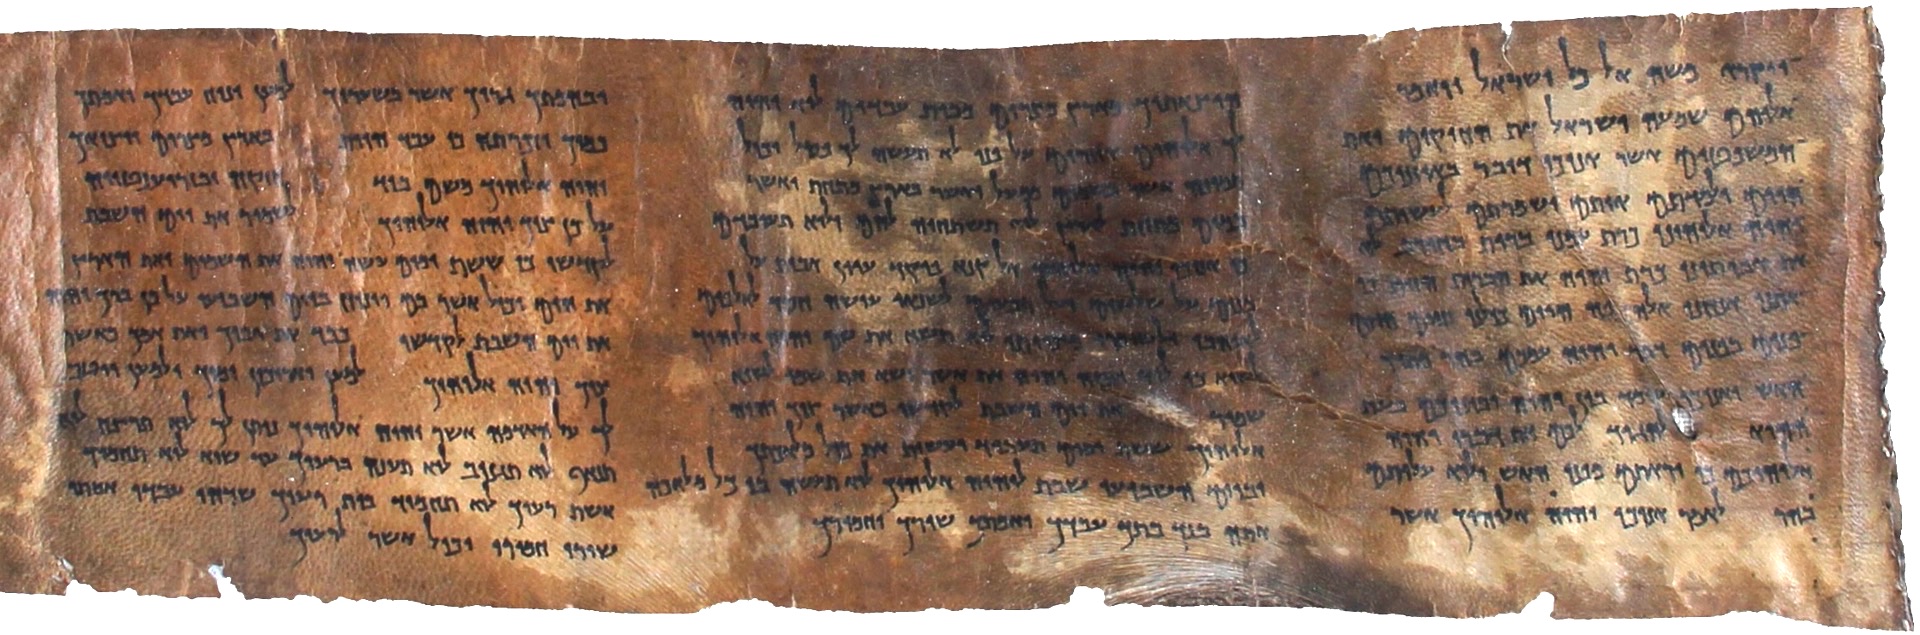 ויקרא משה אל כל ישראל ויאמר
אליהם שמעה ישראל את החוקים ואת
המשפטים אשר אנוכי דובר באוזניכם
היום ולמדתם אותם ושמרתם לעשותם
יהוה אלוהינו כרת עמנו ברית בחורב לא
את אבותינו כרת יהוה את הברית הזאת כי
אתנו אנחנו אלה פה היום כולנו חיים היום
פנים בפנים דבר יהוה עמכם בהר מתוך
האש ואנוכי עומד בין יהוה וביניכם בעת
ההיא להגיד לכם את דברי יהוה
אלוהיכם כי יראתם מפני האש ולא עליתם
בהר לאמר אנוכי יהוה אלוהיך אשר
הוצאתיך מארץ מצרים מבית עבדים לוא יהיה
לך אלוהים אחרים על פני לא תעשה לך פסל וכול
תמונה אשר בשמים ממעל ואשר בארץ מתחת ואשר
במים מתחת לארץ לא תשתחוה להם ולוא תעובדם
כי אנוכי יהוה אלוהיך אל קנא פוקד עוון אבות על
בנים על שלשים ועל רבעים לשנאי עושה חסד לאלפים
לאוהבי ולשומרי מצוותי לוא תשא את שם יהוה אלוהיך
לשוא כי לוא ינקה יהוה את אשר ישא את שמו לשוא
שמור את יום השבת לקדשו כאשר צוך יהוה
אלוהיך ששת ימים תעבוד ועשית את כול מלאכתך
וביום השביעי שבת ליהוה אלוהיך לוא תעשה בו כל מלאכה
אתה בנך בתך עבדך ואמתך שורך וחמורך
ובהמתך גריך אשר בשעריך למען ינוח עבדך ואמתך
כמוך וזכרתה כי עבד היית בארץ מצרים ויציאך
יהוה אלוהיך משם ביד חזקה ובזרוע נטויה
על כן צוך יהוה אלוהיך לשמור את יום השבת
לקדשו כי ששת ימים עשה יהוה את השמים ואת הארץ
את הים וכול אשר בם וינוח ביום השביעי על כן ברך יהוה
את יום השבת לקדשו כבד את אביך ואת אמך כאשר
צוך יהוה אלוהיך למען יאריכון ימיך ולמען ייטב
לך על האדמה אשר יהוה אלוהיך נותן לך לוא תרצח לוא
תנאף לוא תגנוב לוא תענה ברעיך עד שוא לוא תחמוד
אשת רעיך לוא תחמוד בית רעיך שדהו עבדו אמתו
שורו חמורו וכול אשר לרעיך